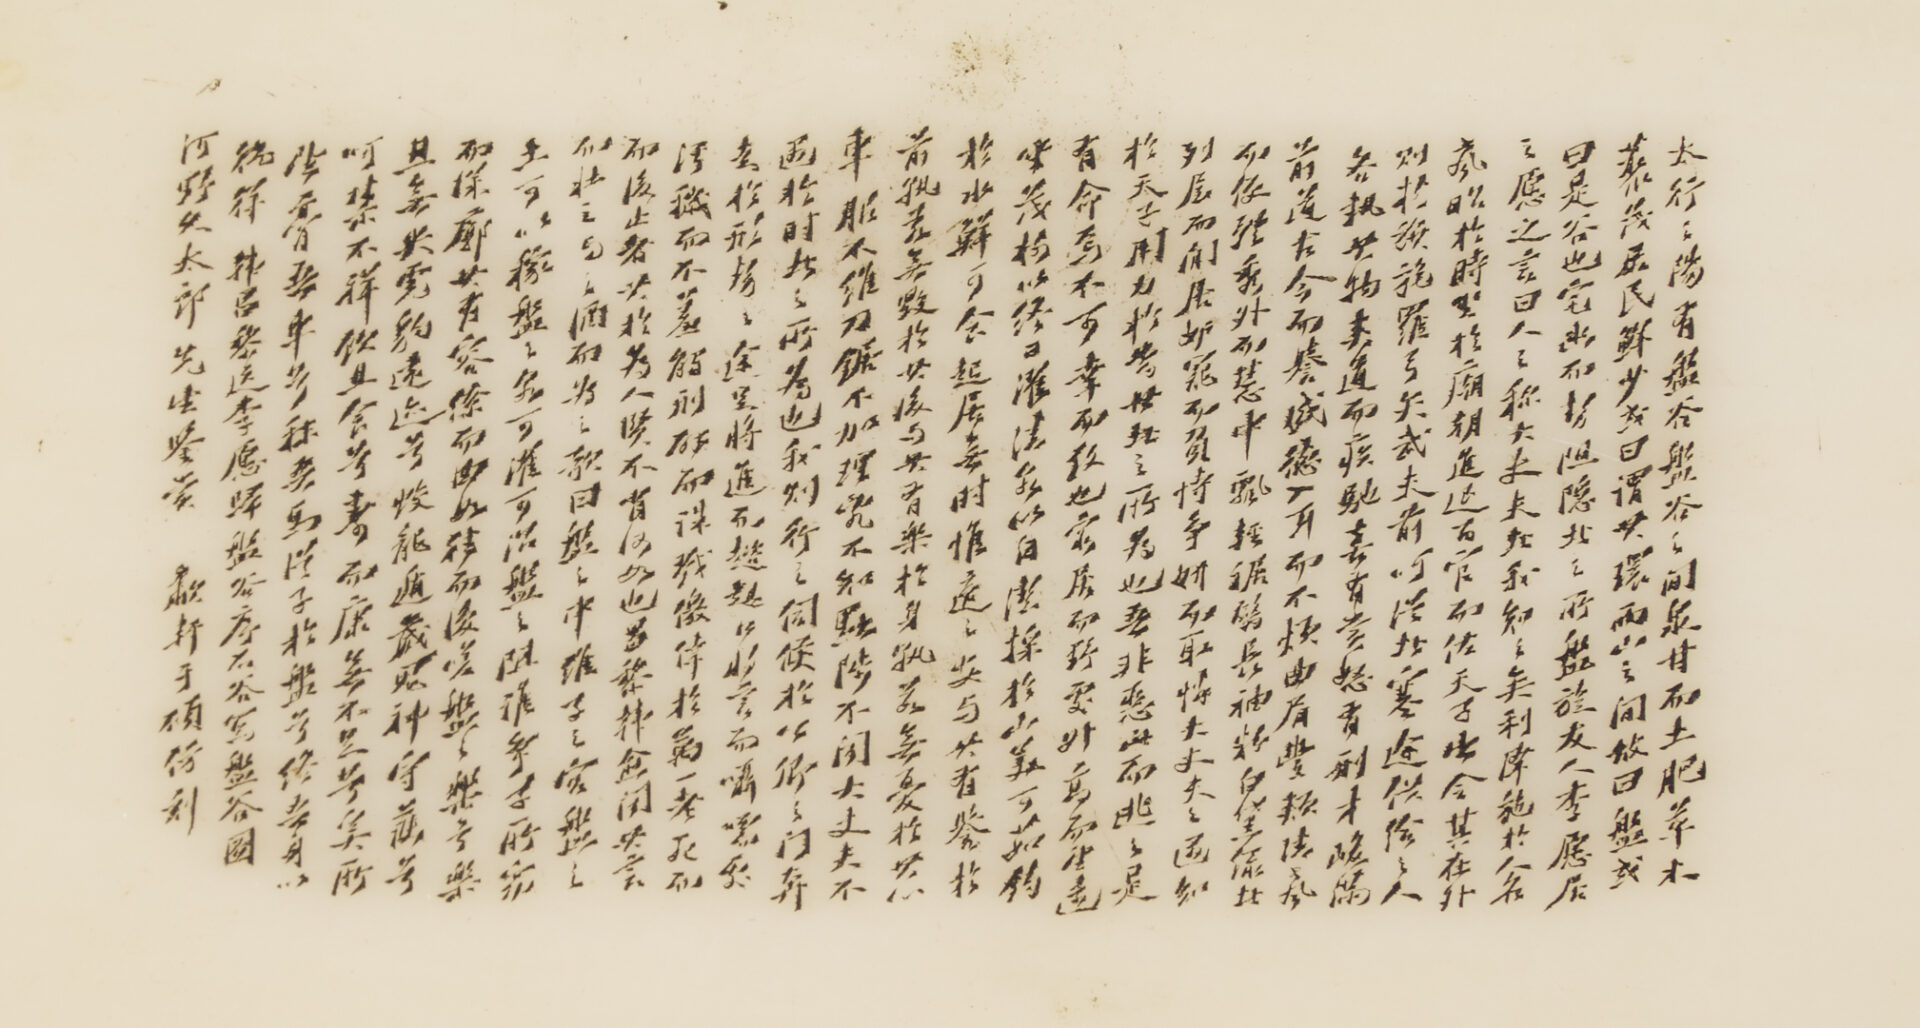 太行之陽有盤谷盤谷之間泉甘而土肥草木
藂茂居民鮮少或曰謂其環兩山之間故曰盤或
曰是谷也宅幽而勢阻隱者之所盤旋友人李愿居
之愿之言曰人之稱大丈夫者我知之矣利澤施於人名
聲昭於時坐於廟朝進退百官而佐天子出令其在外
則樹旗旄羅弓矢武夫前呵從者塞途供給之人
各執其物夾道而疾馳喜有賞怒有刑才畯滿
前道古今而譽盛德入耳而不煩曲眉豐頰清聲
而便體秀外而慧中飄輕裾翳長袖粉白黛綠者
列屋而閒居妒寵而負恃爭妍而取憐大丈夫之遇知
於天子用力於當世者之所為也吾非惡此而逃之是
有命焉不可幸而致也窮居而野處升高而望遠
坐茂樹以終日濯清泉以自潔採於山美可茹釣
於水鮮可食起居無時惟適之安與其有譽於
前孰若無毀於其後與其有樂於身孰若無憂於其心
車服不維刀鋸不加理亂不知黜陟不聞大丈夫不
遇於時者之所為也我則行之伺候於公卿之門奔
走於形勢之途足將進而趑趄口將言而囁嚅處
汙穢而不羞觸刑辟而誅戮僥倖於萬一老死而
而後止者其於為人賢不肖何如也昌黎韓愈聞其言
而壯之與之酒而為之歌曰盤之中維子之宮盤之
土可以稼盤之泉可濯可沿盤之阻誰爭子所窈
而深廓其有容繚而曲如往而復嗟盤之樂兮樂
且無央虎豹遠跡兮蛟龍遁藏鬼神守護兮
呵禁不祥飲且食兮壽而康無不足兮奚所
望膏吾車兮秣吾馬從子於盤兮終吾身以
徜徉 韓昌黎送李愿歸盤谷序不谷寫盤谷圖
河野久太郎先生鑒賞 歗軒于碩仿刻